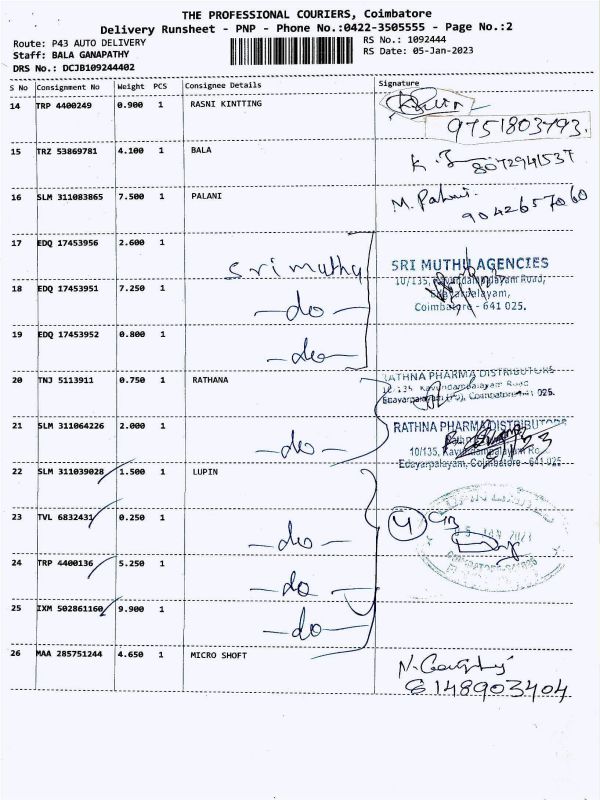 THE PROFESSIONAL COURIERS, Coimbatore
Delivery Runsheet - PNP - Phone No.:0422-3505555 - Page No.:2
Route: P43 AUTO DELIVERY
RS No.: 1092444
Staff: BALA GANAPATHY
RS Date: 05-Jan-2023
DRS No.: DCJB109244402
S No Consignment No Weight PCS Consignee Details Signature
14 TRP 4400249 0.900 1 RASNI KINTTING
9751803793.
15 TRZ 53869781 4.100 1 BALA
8072941537
16 SLM 311083865 7.500 1 PALANI M. Palani.
9042657060
17 EDQ 17453956 2.600 1
sri muthu
SRI MUTHU AGENCIES
10/135, Kavundampalayam Road,
18 EDQ 17453951 7.250 1
Edayarpalayam,
-do-
Coimbatore - 641 025.
19 EDQ 17453952 0.800 1
-do-
20 TNJ 5113911 0.750 1 RATHANA
RATHNA PHARMA DISTRIBUTORS
10/135, Kavundampalayam Road
Edayarpalayam (PO), Coimbatore-641 025.
21 SLM 311064226 2.000 1
-do-
RATHNA PHARMA DISTRIBUTORS
10/135, Kavundampalayam Ro
Edayarpalayam, Coimbatore - 641 025
22 SLM 311039028 1.500 1 LUPIN
23 TVL 6832431 0.250 1
-do-
4
05 JAN 2023
24 TRP 4400136 5.250 1
-do-
25 IXM 502861160 9.900 1
-do-
26 MAA 285751244 4.650 1 MICRO SHOFT
8148903404